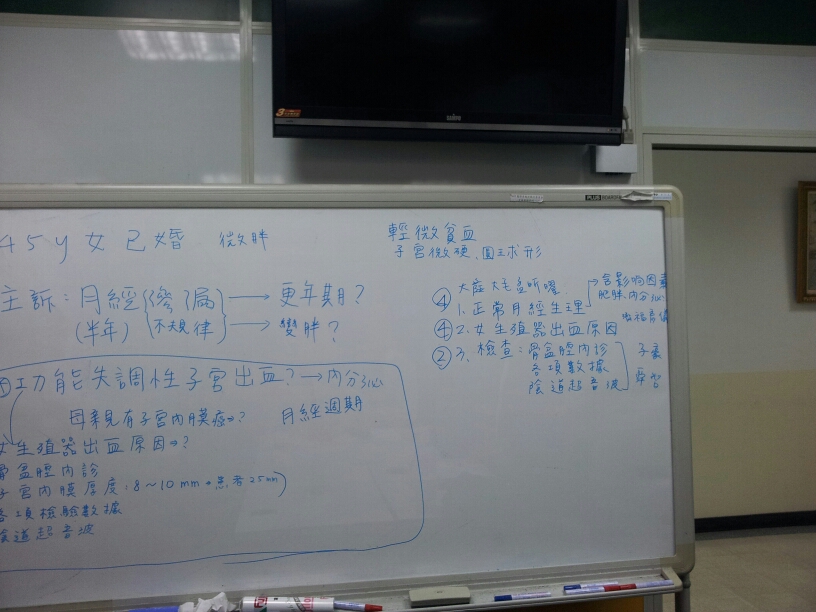 45y 女 已婚 微胖
主訴：月經 滲漏 → 更年期？
(半年) 不規律 → 變胖？
功能失調性子宮出血？→ 內分泌
母親有子宮內膜症→？ 月經週期
女生殖器出血原因→？
骨盆腔內診
子宮內膜厚度：8～10mm 患者25mm)
各項檢驗數據
陰道超音波
輕微貧血
子宮微硬，圓球形
④
1. 正常月經生理 → 含影响因素
肥胖、內分泌
④ 2. 女生殖器出血原因
② 3. 檢查：骨盆腔內診
各項數據
陰道超音波
PLUS